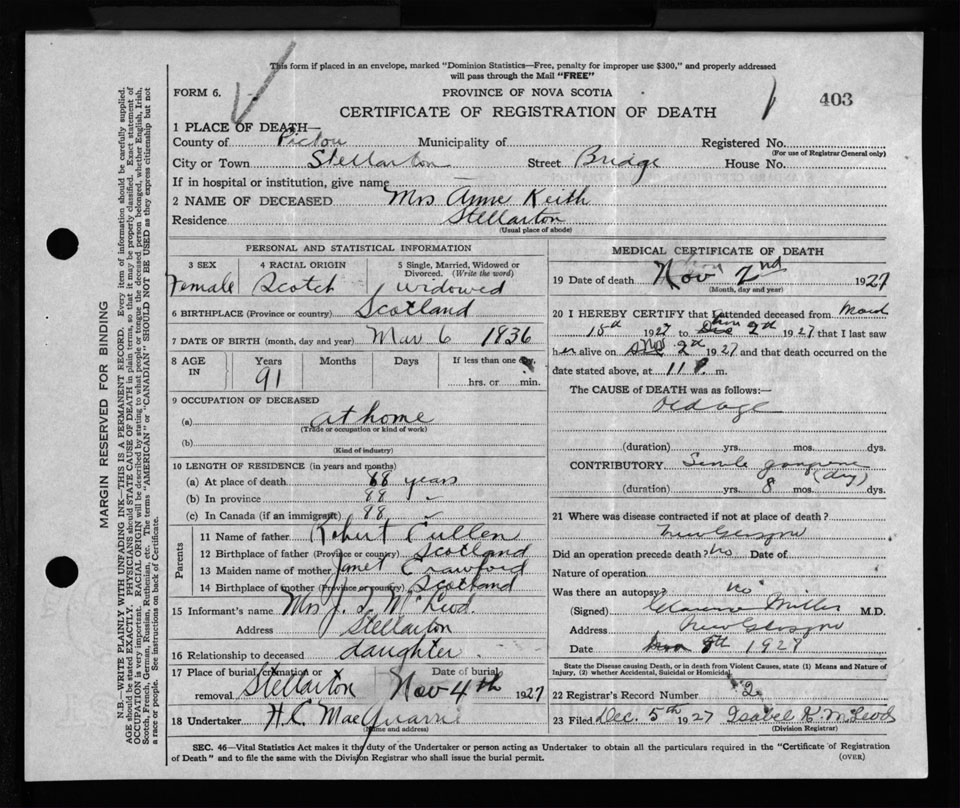 This form if placed in an envelope, marked "Dominion Statistics—Free, penalty for improper use $300," and properly addressed
will pass through the Mail "FREE"
FORM 6. PROVINCE OF NOVA SCOTIA
403
CERTIFICATE OF REGISTRATION OF DEATH
1 PLACE OF DEATH—
County of Pictou Municipality of Registered No.
(For use of Registrar General only)
City or Town Stellarton Street Bridge House No.
If in hospital or institution, give name
2 NAME OF DECEASED Mrs Anne Keith
Residence Stellarton
(Usual place of abode)
PERSONAL AND STATISTICAL INFORMATION
3 SEX 4 RACIAL ORIGIN 5 Single, Married, Widowed or
Divorced. (Write the word)
Female Scotch widowed
6 BIRTHPLACE (Province or country) Scotland
7 DATE OF BIRTH (month, day and year) Mar 6 1836
8 AGE IN Years Months Days If less than one day
91 hrs. or min.
9 OCCUPATION OF DECEASED
(a) at home
(Trade or occupation or kind of work)
(b)
(Kind of industry)
10 LENGTH OF RESIDENCE (in years and months)
(a) At place of death 88 years
(b) In province 88 "
(c) In Canada (if an immigrant) 88 "
Parents
11 Name of father Robert Cullen
12 Birthplace of father (Province or country) Scotland
13 Maiden name of mother Janet Crawford
14 Birthplace of mother (Province or country) Scotland
15 Informant's name Mrs J. McLeod.
Address Stellarton
16 Relationship to deceased daughter
17 Place of burial, cremation or Date of burial
removal Stellarton Nov 4th 1927
18 Undertaker H.C. MacQuarrie
(Name and address)
MEDICAL CERTIFICATE OF DEATH
19 Date of death Nov 2nd 1927
(Month, day and year)
20 I HEREBY CERTIFY that I attended deceased from March
15th 1927 to Nov 2d 1927 that I last saw
her alive on Nov 2d 1927 and that death occurred on the
date stated above, at 11 P. m.
The CAUSE OF DEATH was as follows:—
old age
(duration) yrs. mos. dys.
CONTRIBUTORY Senile gangrene
(dry)
(duration) yrs. 8 mos. dys.
21 Where was disease contracted if not at place of death?
New Glasgow
Did an operation precede death? No Date of
Nature of operation
Was there an autopsy? no
(Signed) Clarence Miller M.D.
Address New Glasgow
Date 8th 1927
State the Disease causing Death, or in death from Violent Causes, state (1) Means and Nature of
Injury, (2) whether Accidental, Suicidal or Homicidal
22 Registrar's Record Number 2
23 Filed Dec. 5th 1927 Isabel K. McLeod
(Division Registrar)
SEC. 46—Vital Statistics Act makes it the duty of the Undertaker or person acting as Undertaker to obtain all the particulars required in the "Certificate of Registration
of Death" and to file the same with the Division Registrar who shall issue the burial permit.
(OVER)
MARGIN RESERVED FOR BINDING
N.B.—WRITE PLAINLY WITH UNFADING INK—THIS IS A PERMANENT RECORD. Every item of information should be carefully supplied.
AGE should be stated EXACTLY. PHYSICIANS should STATE CAUSE OF DEATH in plain terms, so that it may be properly classified. Exact statement of
OCCUPATION is very important. RACIAL ORIGIN will be described by stating to what people or tongue the deceased person belonged, whether English, Irish,
Scotch, French, German, Russian, Ruthenian, etc. The terms "AMERICAN" or "CANADIAN" SHOULD NOT BE USED as they express citizenship but not
a race or people. See instructions on back of Certificate.